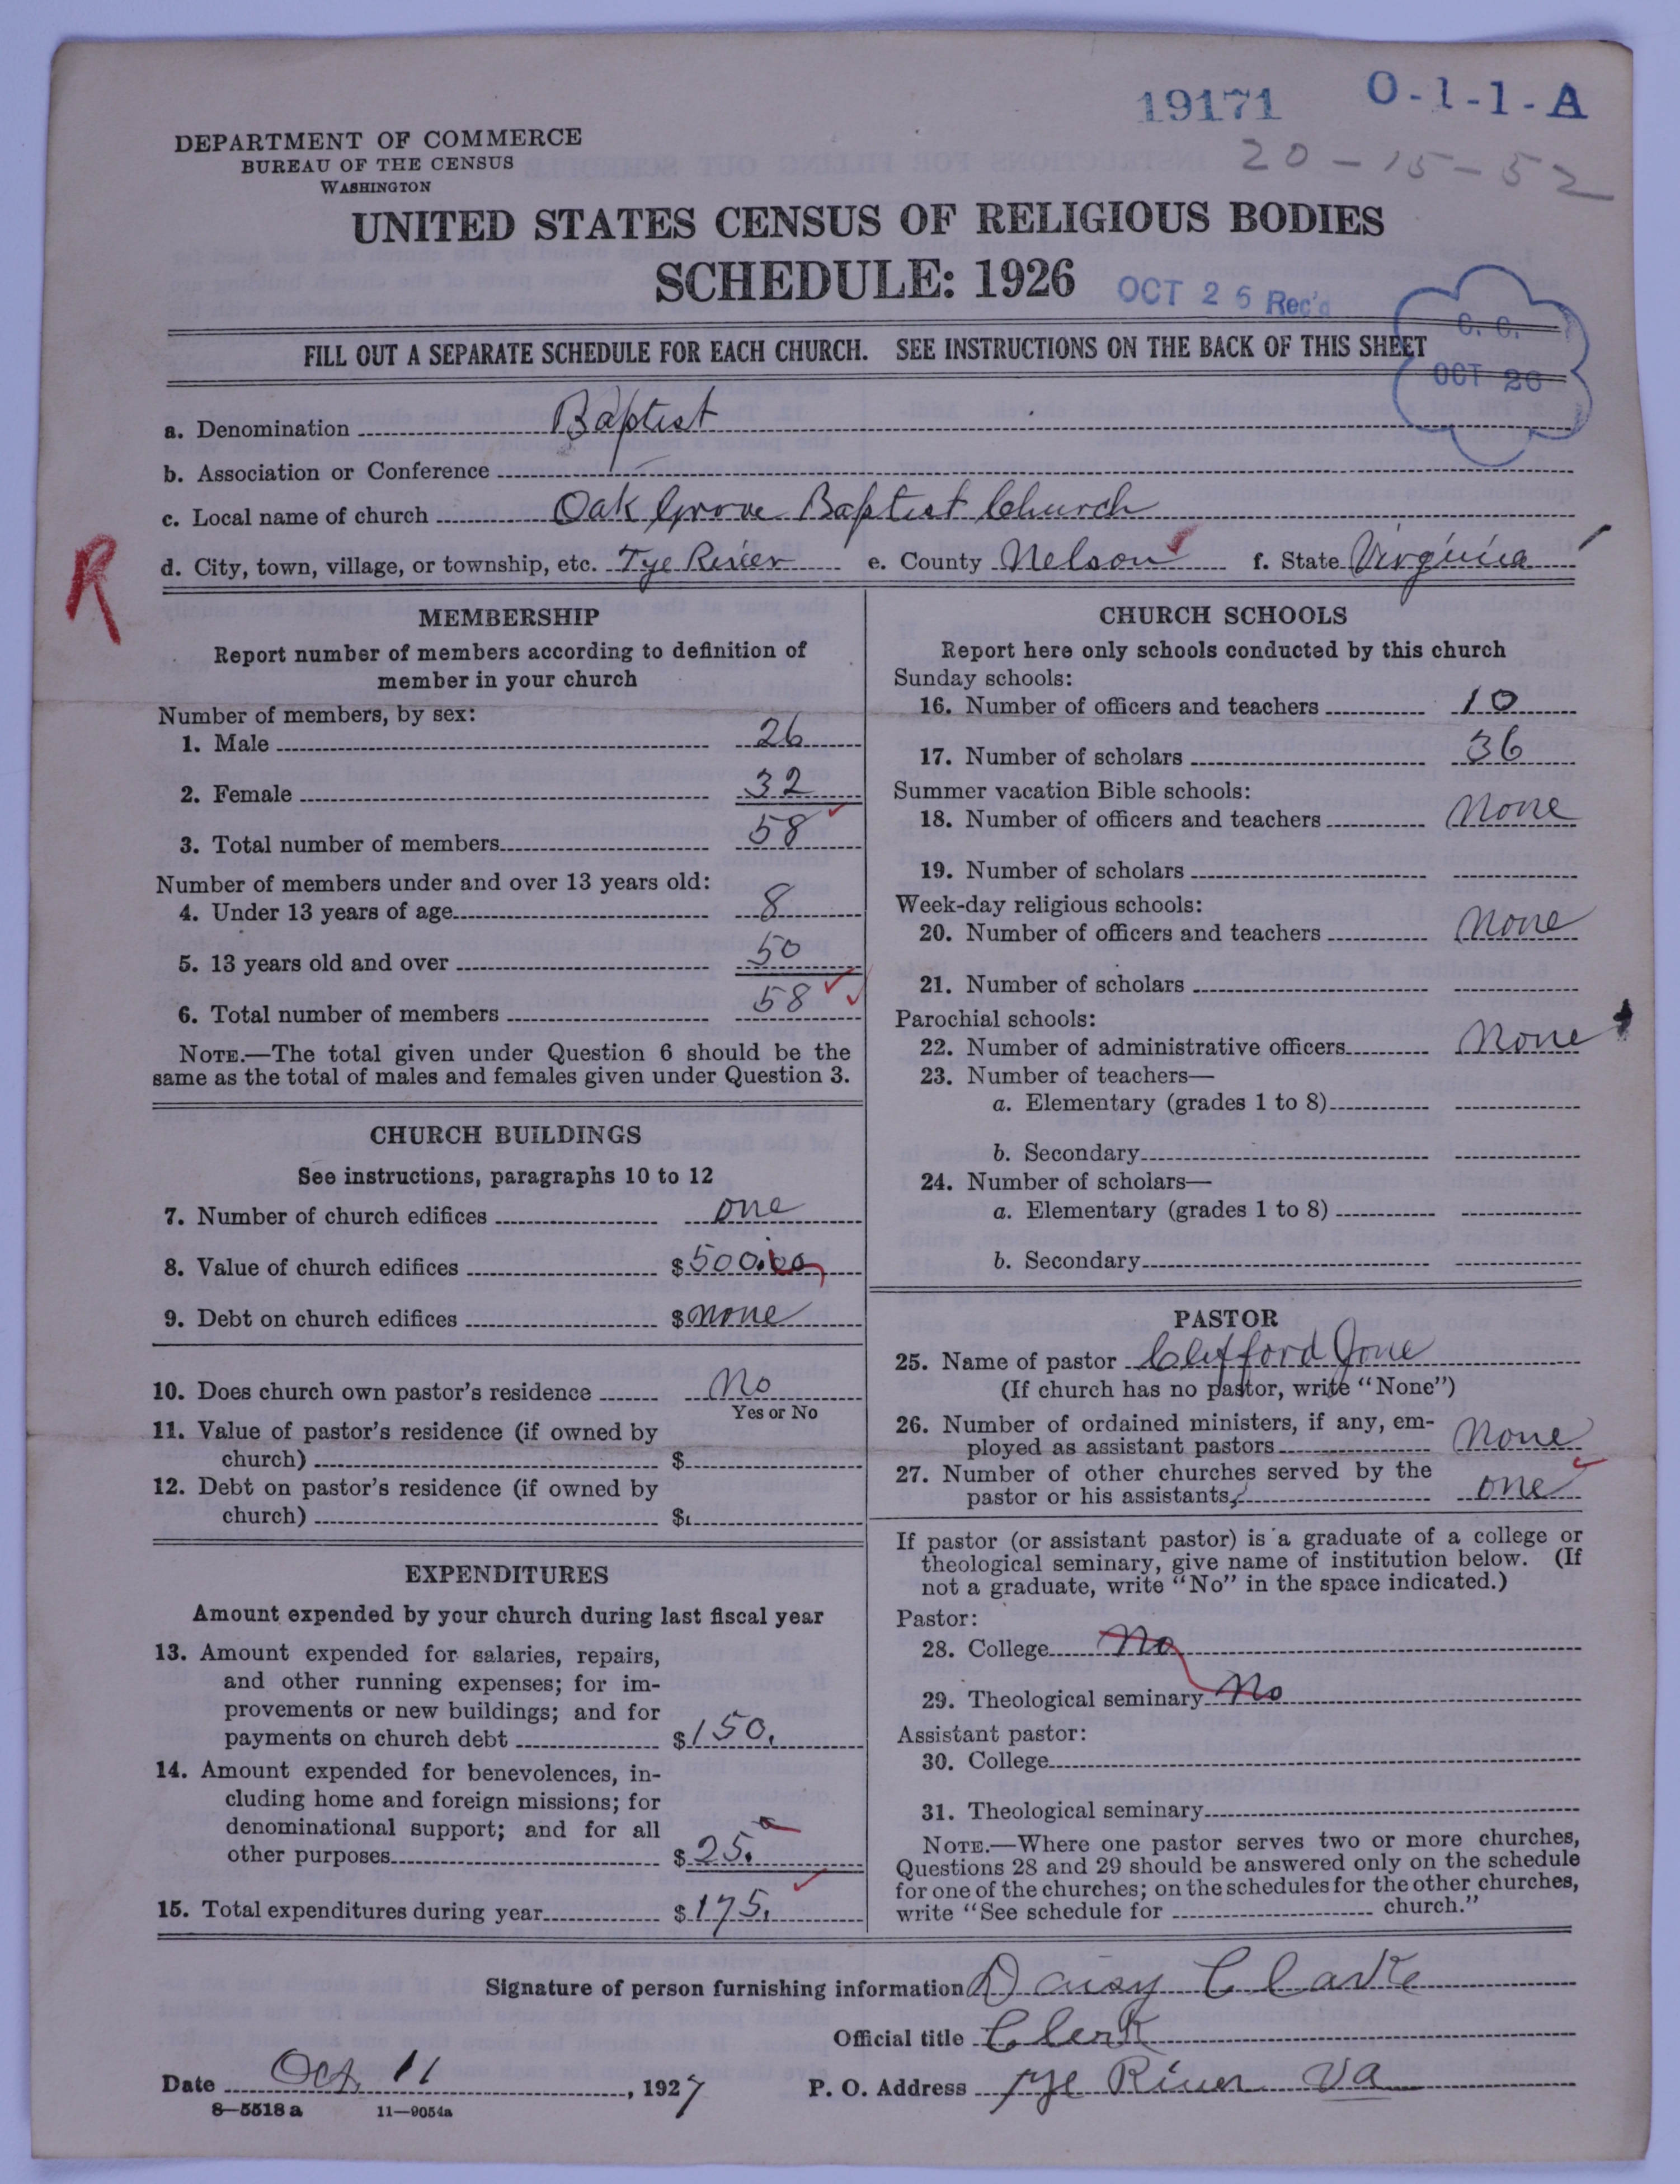 19171 O-1-1-A
20-15-52
DEPARTMENT OF COMMERCE
BUREAU OF THE CENSUS
WASHINGTON
UNITED STATES CENSUS OF RELIGIOUS BODIES
SCHEDULE: 1926
OCT 26 Rec'd
C. C.
OCT 26
FILL OUT A SEPARATE SCHEDULE FOR EACH CHURCH. SEE INSTRUCTIONS ON THE BACK OF THIS SHEET
a. Denomination Baptist
b. Association or Conference
c. Local name of church Oak Grove Baptist Church
d. City, town, village, or township, etc. Tye River e. County Nelson f. State Virginia
R
MEMBERSHIP
Report number of members according to definition of
member in your church
Number of members, by sex:
1. Male 26
2. Female 32
3. Total number of members 58
Number of members under and over 13 years old:
4. Under 13 years of age 8
5. 13 years old and over 50
6. Total number of members 58
NOTE.—The total given under Question 6 should be the
same as the total of males and females given under Question 3.
CHURCH BUILDINGS
See instructions, paragraphs 10 to 12
7. Number of church edifices one
8. Value of church edifices $500.00
9. Debt on church edifices $none
10. Does church own pastor's residence No
Yes or No
11. Value of pastor's residence (if owned by
church) $
12. Debt on pastor's residence (if owned by
church) $
EXPENDITURES
Amount expended by your church during last fiscal year
13. Amount expended for salaries, repairs,
and other running expenses; for im-
provements or new buildings; and for
payments on church debt $150.
14. Amount expended for benevolences, in-
cluding home and foreign missions; for
denominational support; and for all
other purposes $25.
15. Total expenditures during year $175.
CHURCH SCHOOLS
Report here only schools conducted by this church
Sunday schools:
16. Number of officers and teachers 10
17. Number of scholars 36
Summer vacation Bible schools:
18. Number of officers and teachers None
19. Number of scholars
Week-day religious schools:
20. Number of officers and teachers None
21. Number of scholars
Parochial schools:
22. Number of administrative officers None
23. Number of teachers—
a. Elementary (grades 1 to 8)
b. Secondary
24. Number of scholars—
a. Elementary (grades 1 to 8)
b. Secondary
PASTOR
25. Name of pastor Clifford Jone
(If church has no pastor, write "None")
26. Number of ordained ministers, if any, em-
ployed as assistant pastors None
27. Number of other churches served by the
pastor or his assistants, one
If pastor (or assistant pastor) is a graduate of a college or
theological seminary, give name of institution below. (If
not a graduate, write "No" in the space indicated.)
Pastor:
28. College No
29. Theological seminary No
Assistant pastor:
30. College
31. Theological seminary
NOTE.—Where one pastor serves two or more churches,
Questions 28 and 29 should be answered only on the schedule
for one of the churches; on the schedules for the other churches,
write "See schedule for church."
Signature of person furnishing information Daisy Clarke
Official title Clerk
Date Oct. 11, 1927 P. O. Address Tye River Va
8—5518a 11—9054a